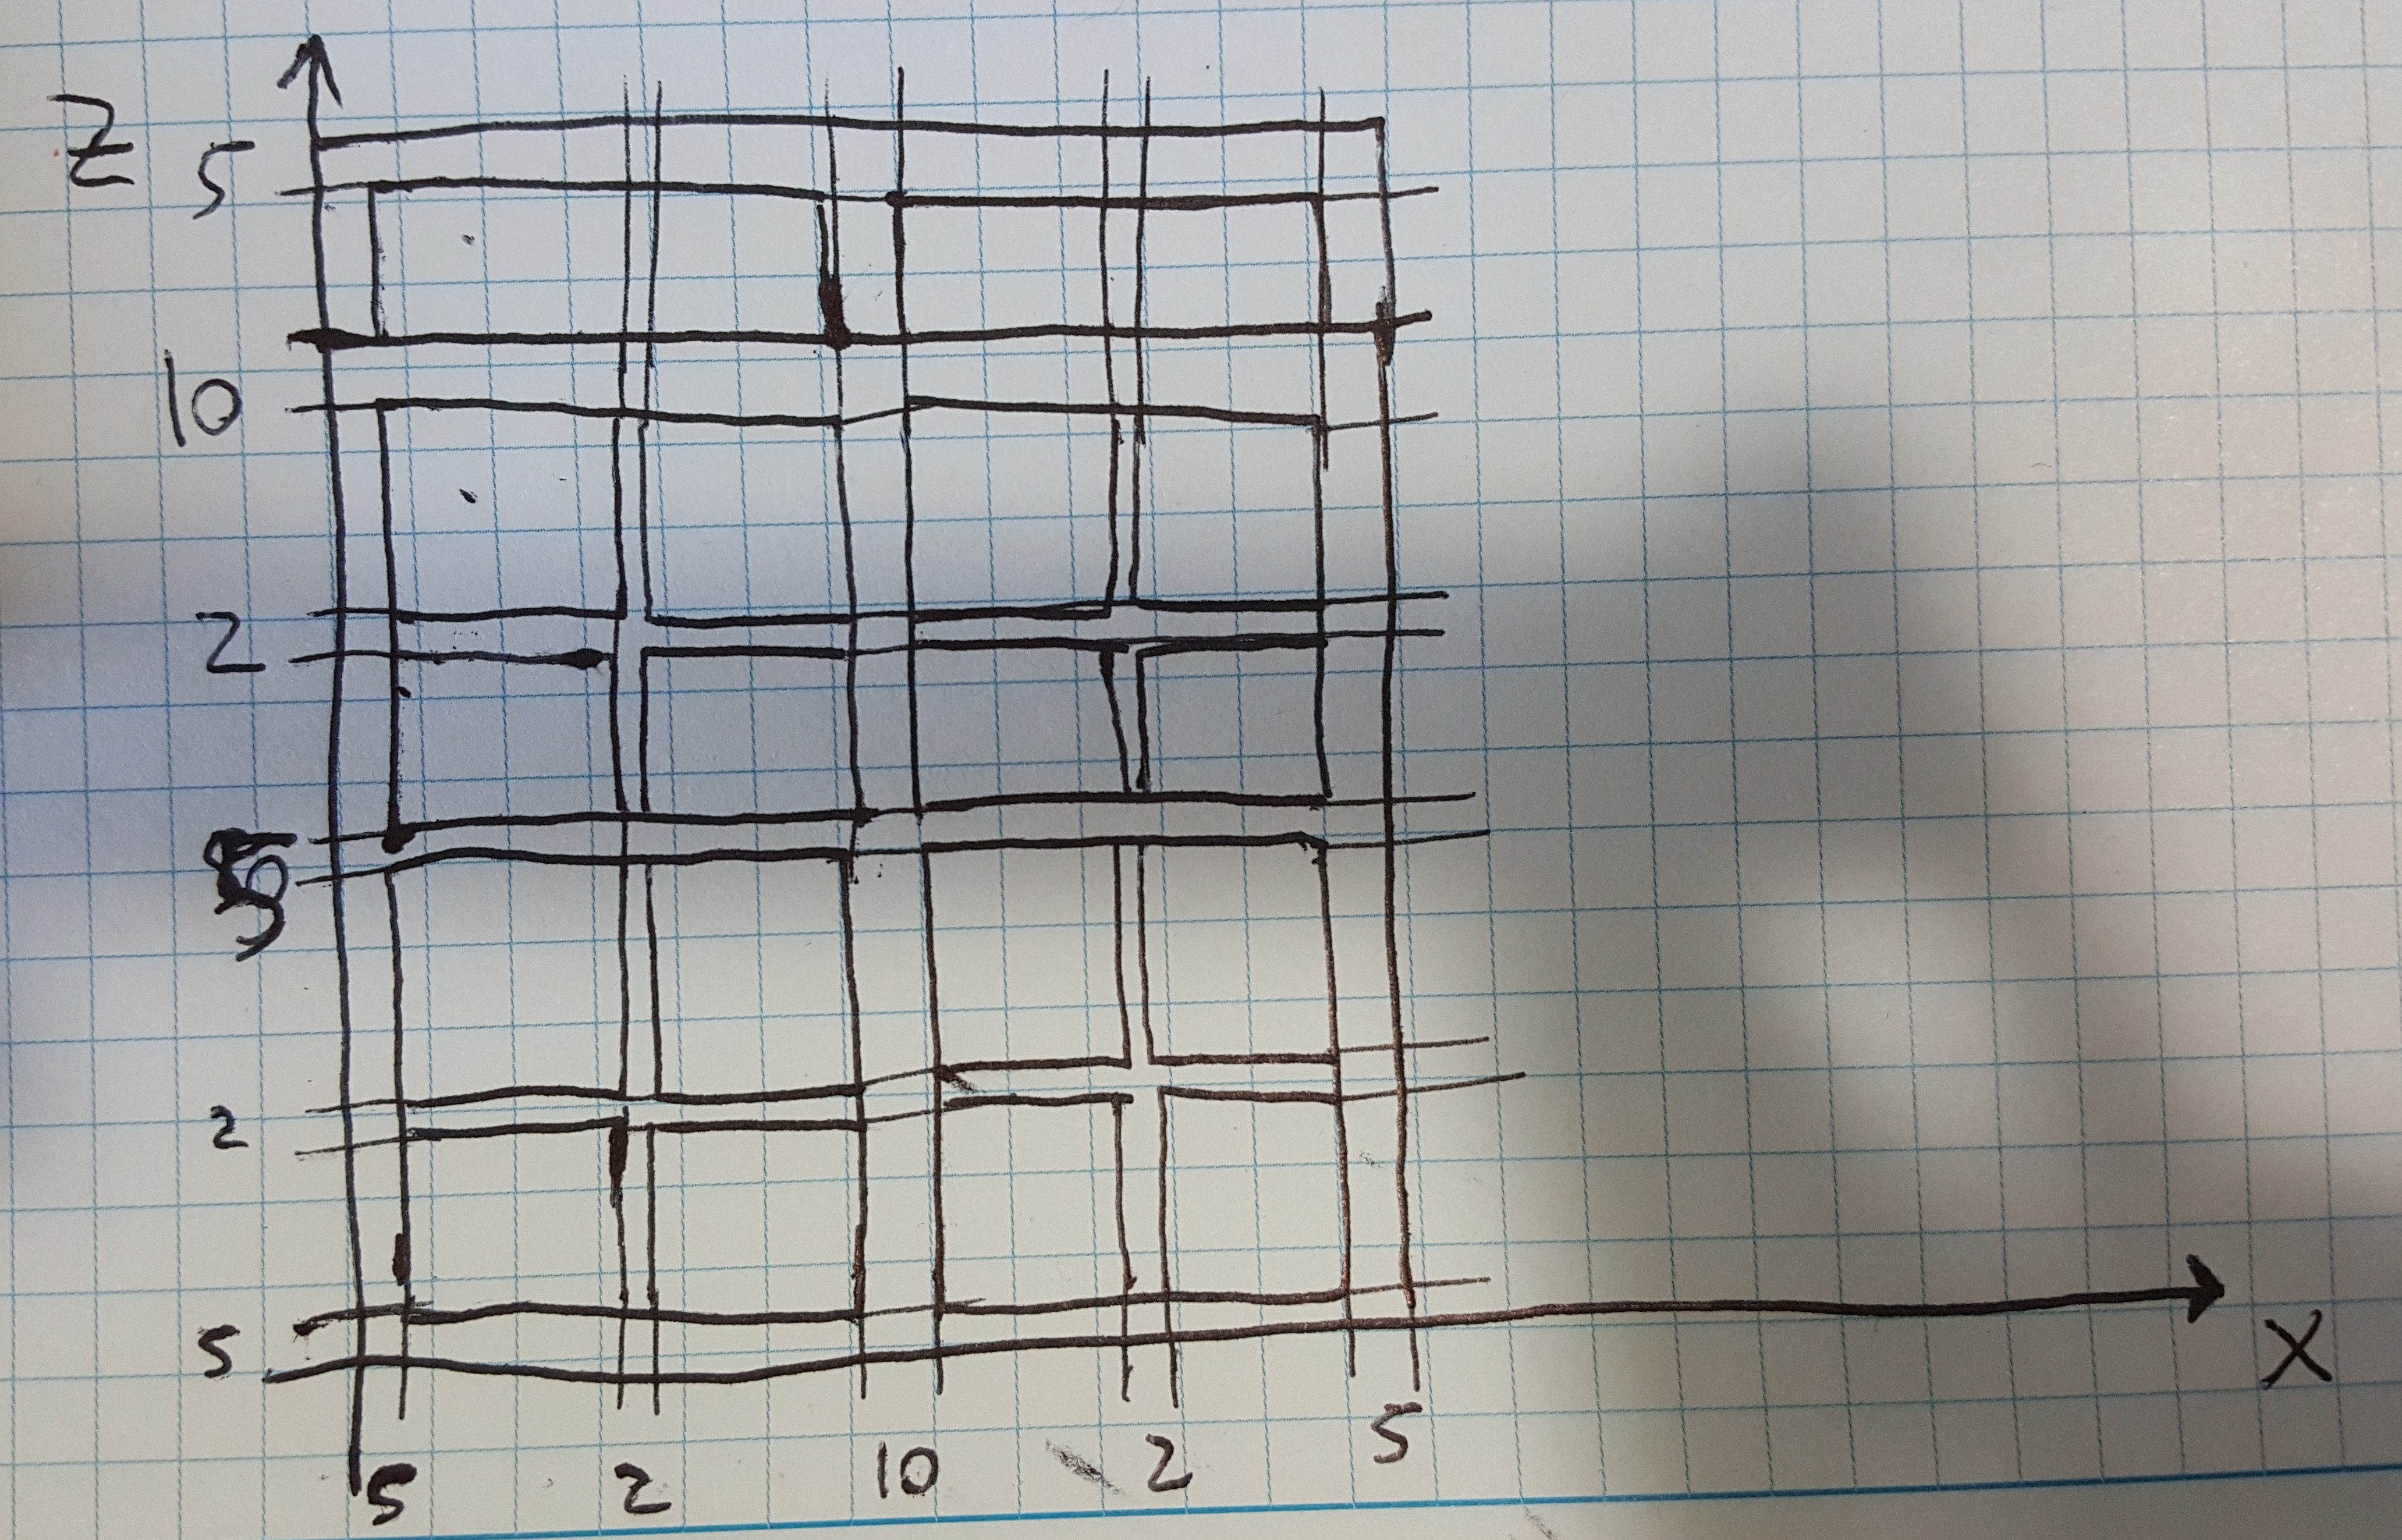 Z
5
10
2
5
2
5
5 2 10 2 5
X